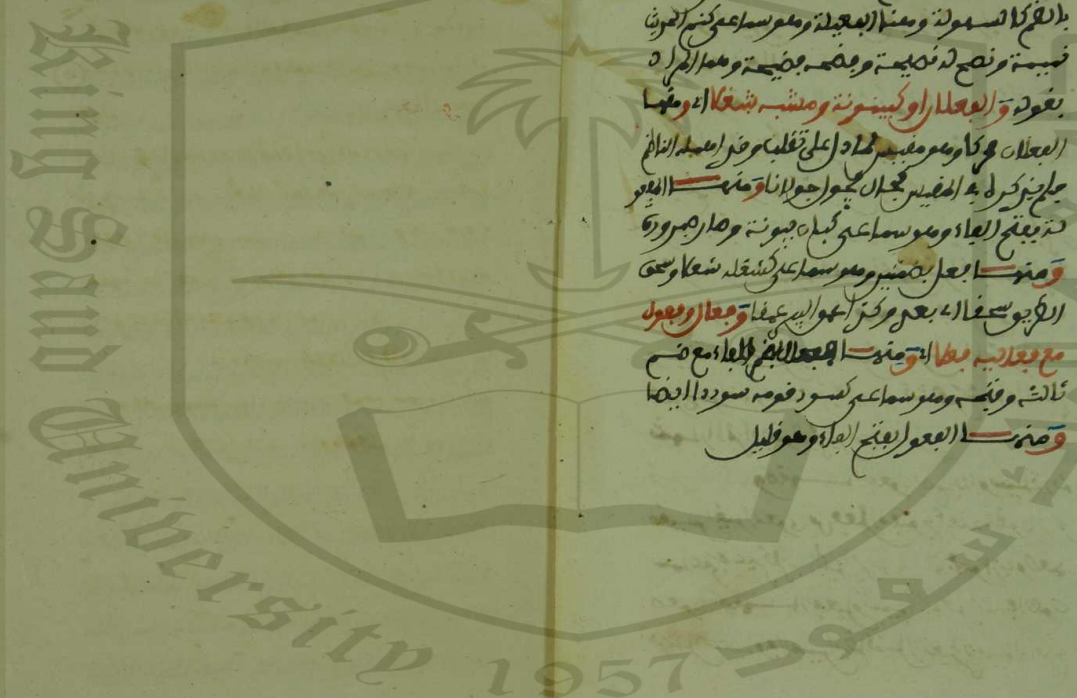 بالضم كالسهولة ومنها الفعيلة وهو سماعي كنم الحديث
نميمة ونصح له نصيحة وفضحه فضيحة وهذا المراد
بقوله والفعلان او كبينونة ومشبه شغلا اي ومنها
الفعلان محركا وهو مقيس فيما دل على تقلب وقد اهمله الناظم
فلم يذكره في المقيس كجال يجول جولانا ومنها الفعلو
لة بفتح الفاء وهو سماعي كبان بينونة وصار صيرورة
ومنها فعل بضمتين وهو سماعي كشغله شغلا وسحق
الطريق سحقا اي بعد وكذا عمق البير عمقا وفعلل وفعول
مع فعالية فعلا اي ومنها الفعلل بضم الفاء مع ضم
ثالثه وفتحه وهو سماعي كسود قومه سوددا ايضا
ومنها الفعول بفتح الفاء وهو قليل
King Saud University
1957